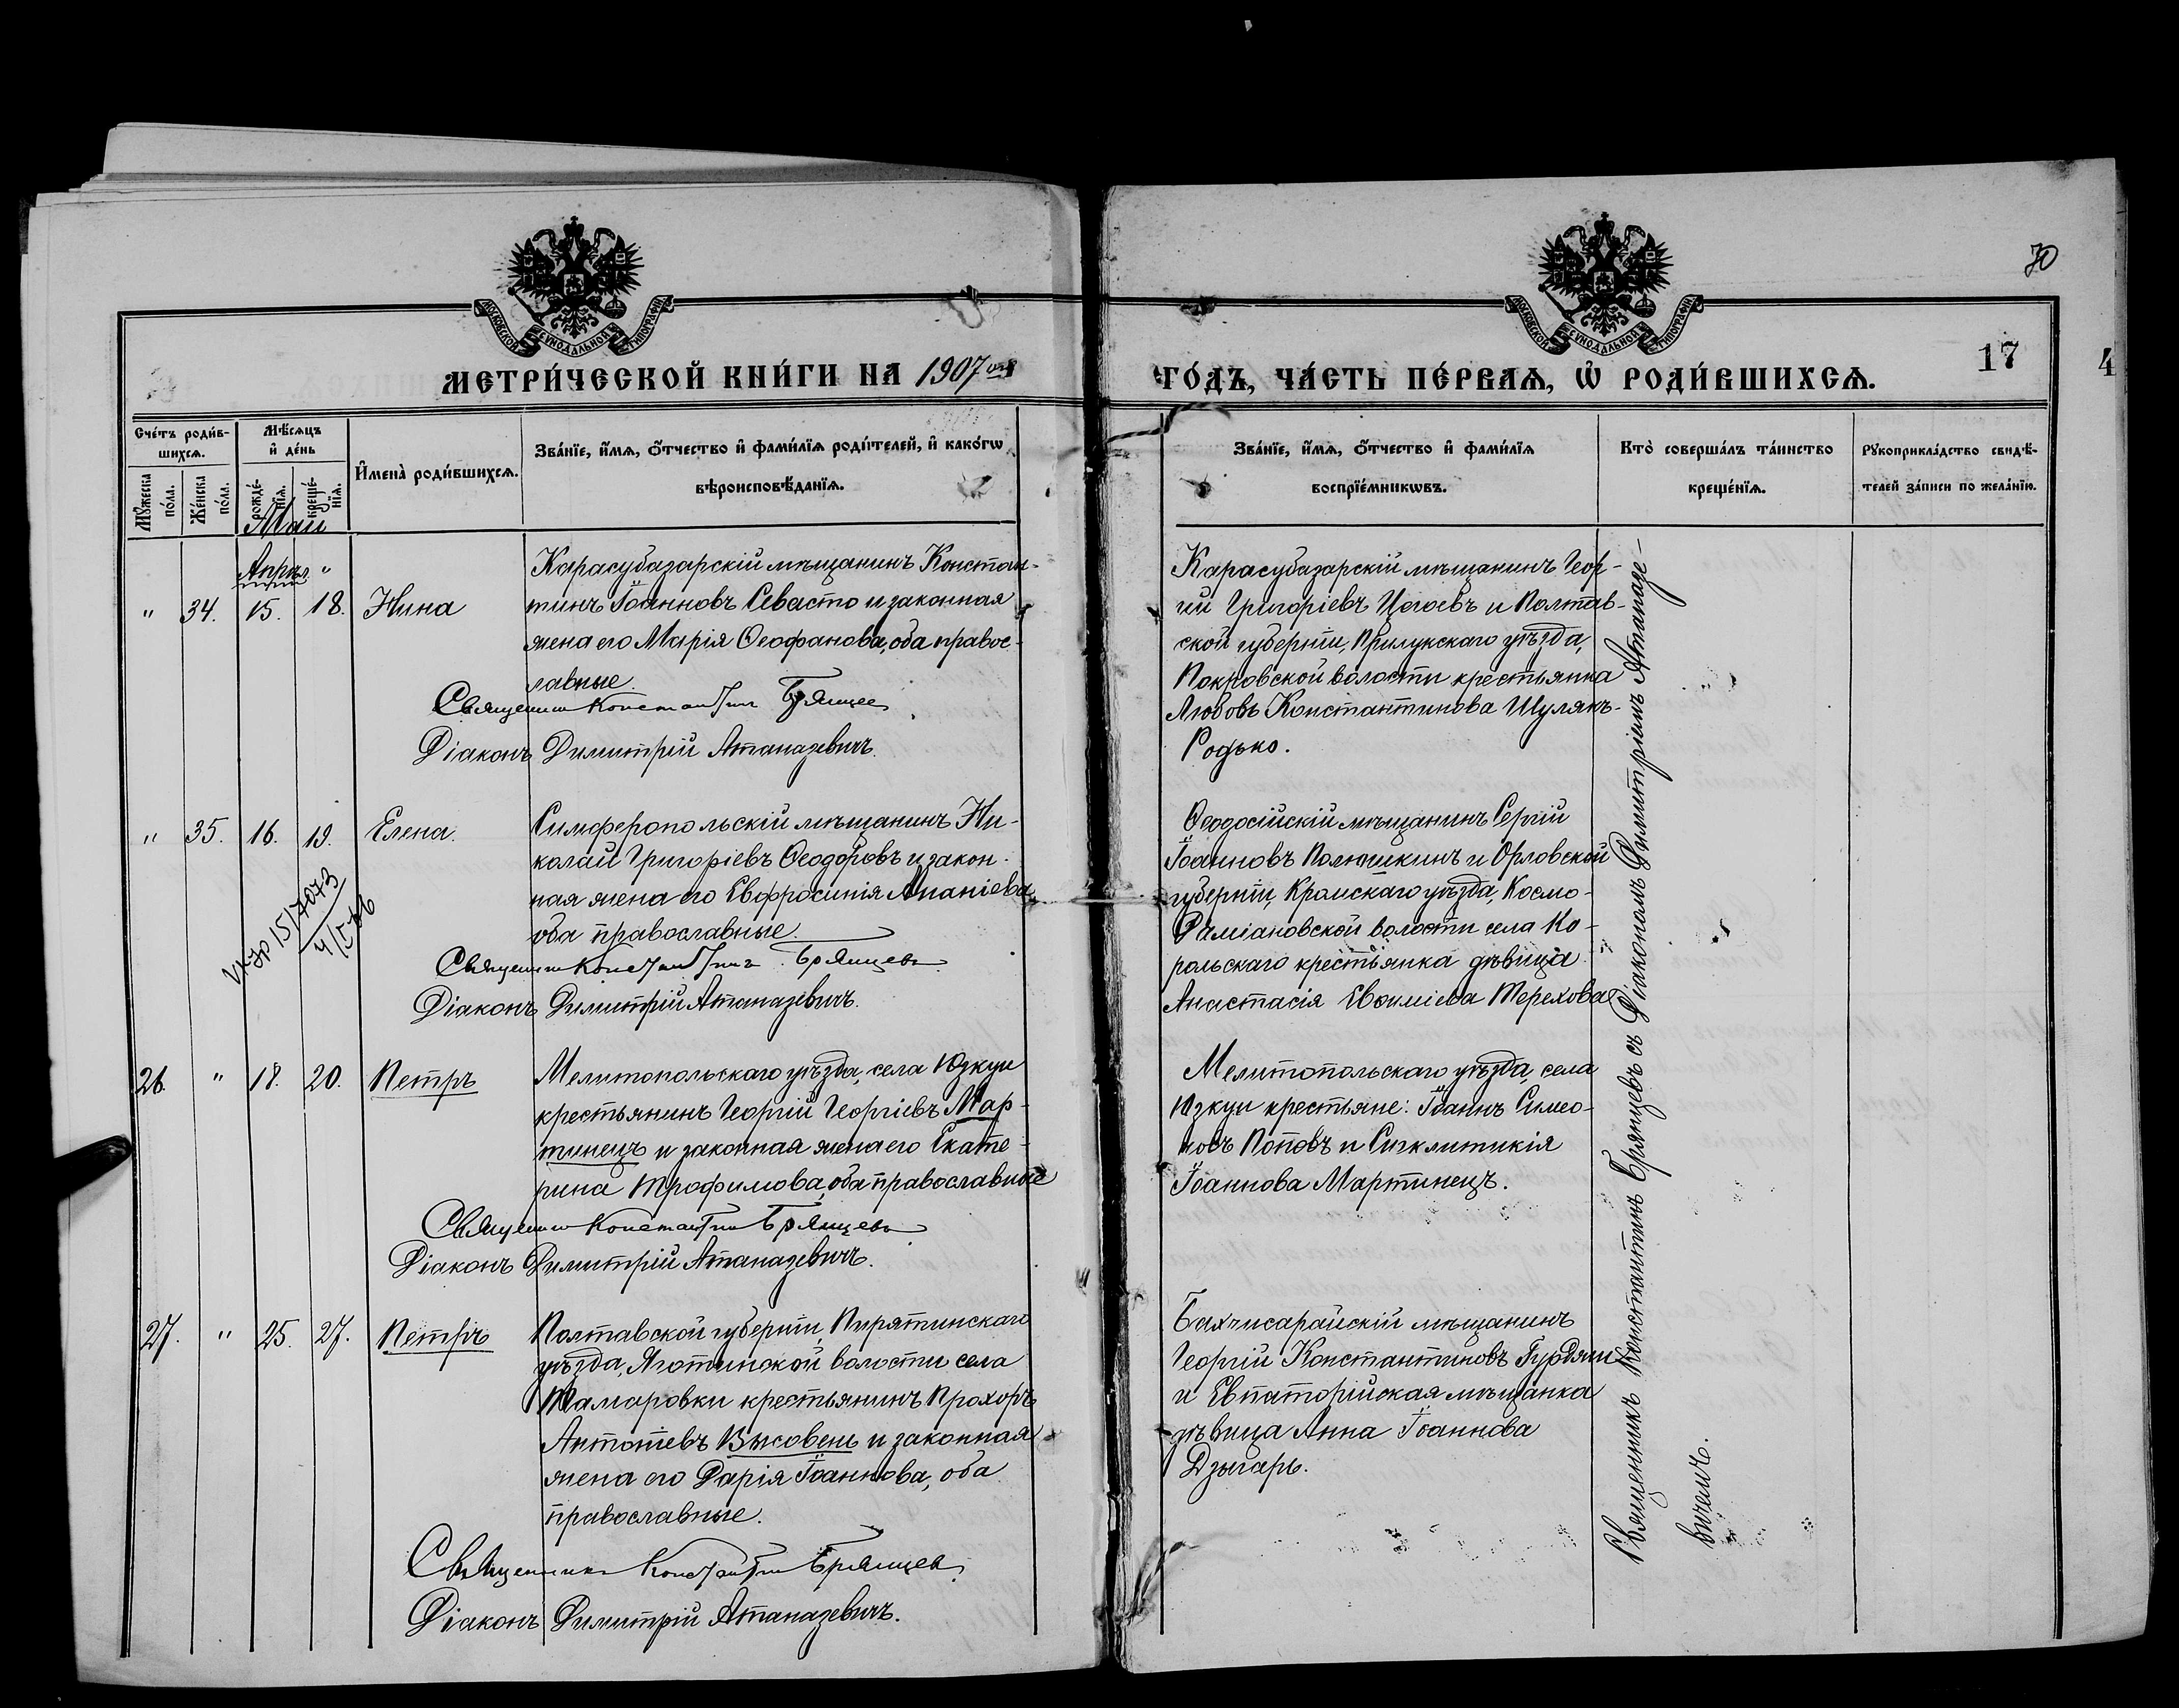 70
МОСКОВСКОЙ СѴНОДАЛЬНОЙ ТИПОГРАФІИ
МОСКОВСКОЙ СѴНОДАЛЬНОЙ ТИПОГРАФІИ
МЕТРИ́ЧЕСКОЙ КНИ́ГИ НА 1907 ГО́ДЪ, ЧА́СТЬ ПЕ́РВАѦ, Ѡ҆ РОДИ́ВШИХСѦ.
17
4
Сче́тъ роди́в-
шихсѧ.
Мꙋ́жеска по́ла.
Же́нска по́ла.
Мѣ́сѧцъ
и҆ де́нь
рожде́-
нїѧ.
креще́-
нїѧ.
И҆мена̀ роди́вшихсѧ.
Зва́нїе, и҆́мѧ, ѻ҆́тчество и҆ фами́лїѧ роди́телей, и҆ како́гѡ
вѣроисповѣ́данїѧ.
Зва́нїе, и҆́мѧ, ѻ҆́тчество и҆ фами́лїѧ
воспрїе́мникѡвъ.
Кто̀ соверша́лъ та́инство
креще́нїѧ.
Рꙋкоприкла́дство свидѣ́-
телей за́писи по жела́нїю.
Май
Апрѣл "
" 34. 15. 18. Нина
Карасубазарскій мѣщанинъ Констан-
тинъ Іоанновъ Севасто и законная
жена его Марія Ѳеофанова, оба правос-
лавные.
Священникъ Константинъ Брянцев
Діаконъ Димитрій Атаназевичъ.
Карасубазарскій мѣщанинъ Геор-
гій Григоріевъ Цогоевъ и Полтав-
ской губерніи, Прилукскаго уѣзда,
Покровской волости крестьянка
Любовь Константинова Шулякъ-
Родько.
" 35. 16. 19. Елена.
Симферопольскій мѣщанинъ Ни-
колай Григоріевъ Ѳеодоровъ и закон-
ная жена его Евфросинія Ананіева
оба православные.
Священникъ Константинъ Брянцевъ
Діаконъ Димитрій Атаназевичъ.
Ѳеодосійскій мѣщанинъ Сергій
Іоанновъ Полюшкинъ и Орловской
губерніи, Кромскаго уѣзда, Космо-
Даміановской волости села Ко-
рольскаго крестьянка дѣвица
Анастасія Евѳиміева Терехова
26. " 18. 20. Петръ
Мелитопольскаго уѣзда, села Юзкуи
крестьянинъ Георгій Георгіевъ Мар-
тинецъ и законная жена его Екате-
рина Трофимова, оба православные
Священникъ Константинъ Брянцевъ
Діаконъ Димитрій Атаназевичъ.
Мелитопольскаго уѣзда, села
Юзкуи крестьяне: Іоаннъ Симео-
новъ Поповъ и Синклитикія
Іоаннова Мартинецъ.
27. " 25. 27. Петръ
Полтавской губерніи, Пирятинскаго
уѣзда, Яготинской волости села
Тамаровки крестьянинъ Прохоръ
Антоніевъ Высовень и законная
жена его Дарія Іоаннова, оба
православные.
Священникъ Константинъ Брянцевъ
Діаконъ Димитрій Атаназевичъ.
Бахчисарайскій мѣщанинъ
Георгій Константиновъ Гурджи
и Евпаторійская мѣщанка
дѣвица Анна Іоаннова
Дзыгарь.
Священникъ Константинъ Брянцевъ съ Діакономъ Димитріемъ Атаназе-
вичемъ.